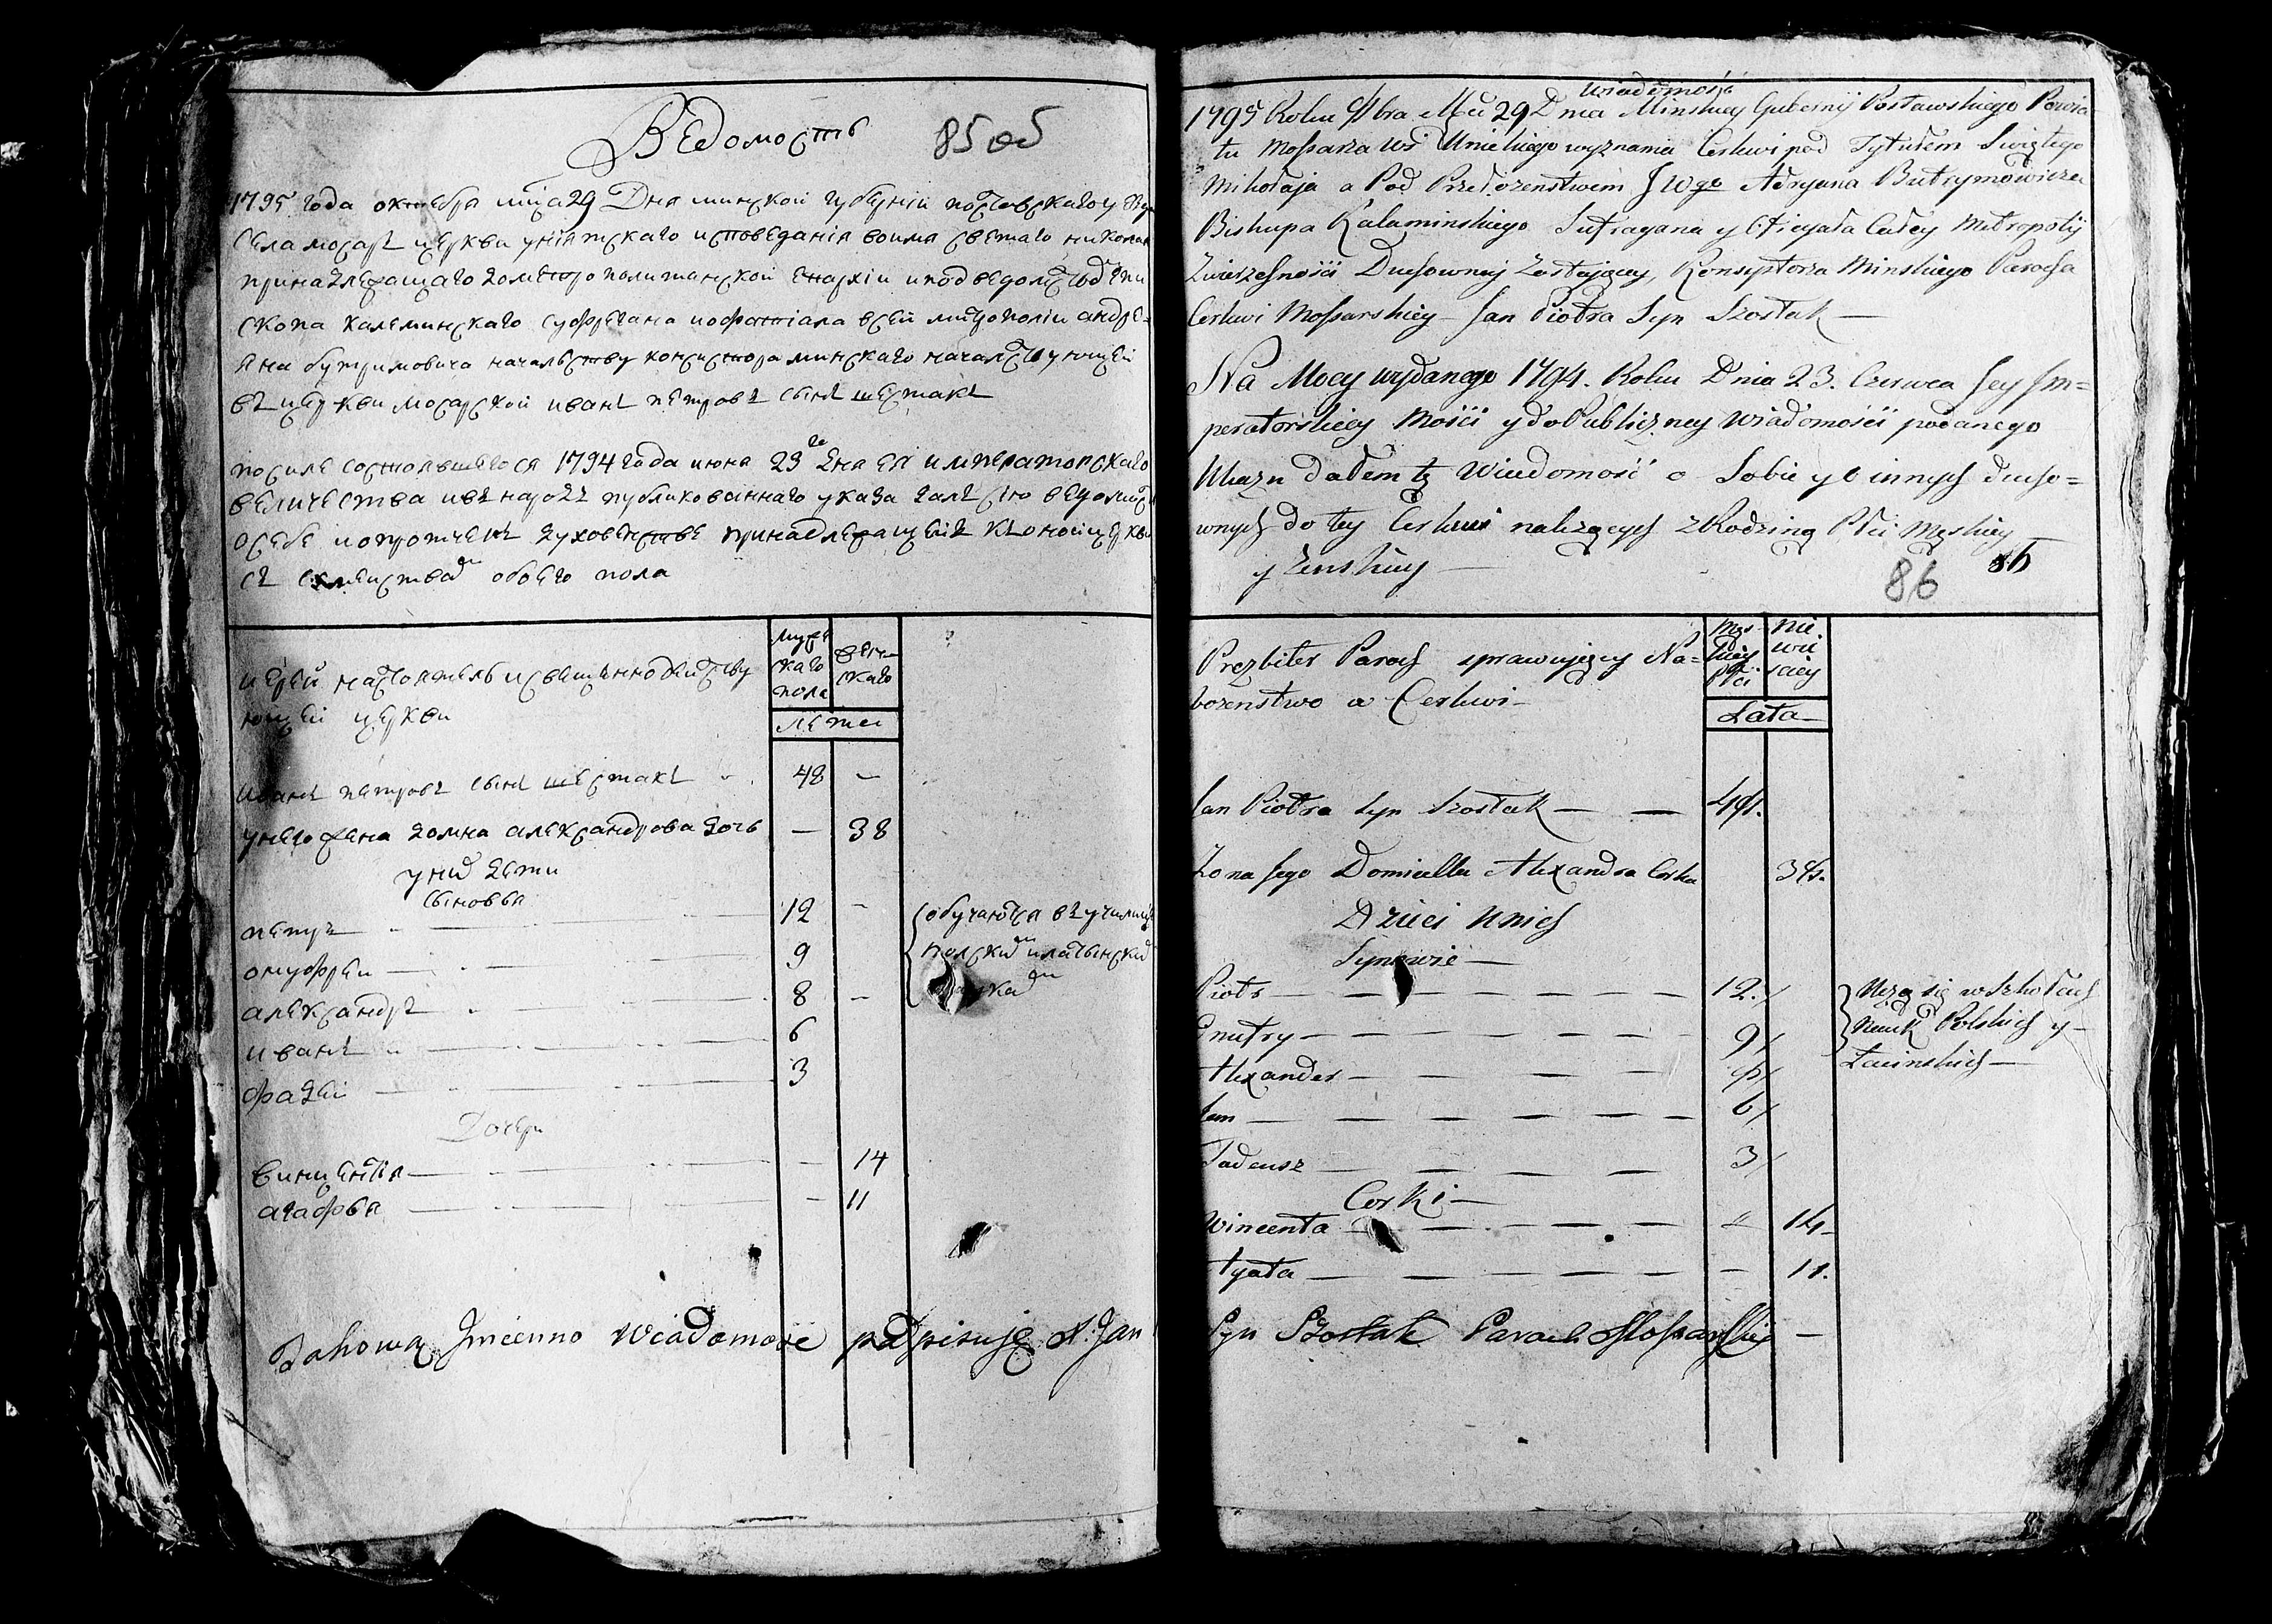 Ведомость
85 об
1795 года октебра мца 29 Дня минской губернiи поставского уез
села мосарь церкви унiятского исповеданiя во имя светаго никола
принадлежащаго к метрополитанской епархiи и под ведомством епи
скопа калеминскаго суффрегана и офатiала всей митрополiи андре=
яна бутримовича начальству консистора минскаго началствующей
въ церкви мосарской иванъ петровъ сынъ шестакъ
по силе состоявшегося 1794 года июня 23го дня ея императорскаго
величества и въ народъ публикованнаго указа далъ сiю ведомост
о себе и о протчемъ духовенстве принадлежащемъ къ оной церкви
съ семействам обоего пола
иерей настоятель и священнодейству
ющей церкви
мужс
каго
пола
женс
скаго
лета
иванъ петровъ сынъ шестакъ 48 —
у него жена домна александрова дочь — 38
у них дети
сыновья
петръ 12 —
онуфреи 9
александръ 8 —
иванъ 6
фадеи 3
Дочери
винцентiя — 14
агафья — 11
обучаются въ училищ
полским и латынским
Takową Jmienno Wiadomosc podpisuję X. Jan
Wiadomość
1795 Roku 8bra Mca 29 Dnia Minskiey Gubernij Postawskiego Powia
tu Mossarza wsi Unickiego wyznania Cerkwi pod Tytułem Swiętego
Mikołaja a Pod Przełożenstwem JWgo Adryana Butrymowicza
Biskupa Kalaminskiego Sufragana y Oficyała Całey Metropolij
Zwierzchności Duchowney Zostaiącey, Konsystorza Minskiego Parocha
Cerkwi Mossarskiey Jan Piotra Syn Szostak —
Na Mocy wydanego 1794. Roku Dnia 23. Czerwca Jey Jm=
peratorskiey Mości y do Publiczney Wiadomości podanego
Ukazu dałem tę Wiadomość o Sobie y o innych ducho=
wnych do tey Cerkwi należących z Rodziną Płci Męskiey
y Zenskiey —
86 86
Prezbiter Paroch sprawujący Na=
bożenstwo w Cerkwi —
Męs
kiey
Płci
Nie
wie
sciey
Lata
Jan Piotra Syn Szostak — — 48.
Zona Jego Domicella Alexandra Corka 38.
Dzieci Unich
Synowie —
Piotr — 12.
Onufry — 9
Alexander — 8
Jan — 6
Tadeusz — 3
Corki —
Wincenta — 14
Agata — 11.
Uczą się w Szkołach
Nauk Polskich y
Łacinskich —
Syn Szostak Paroch Mossarski —